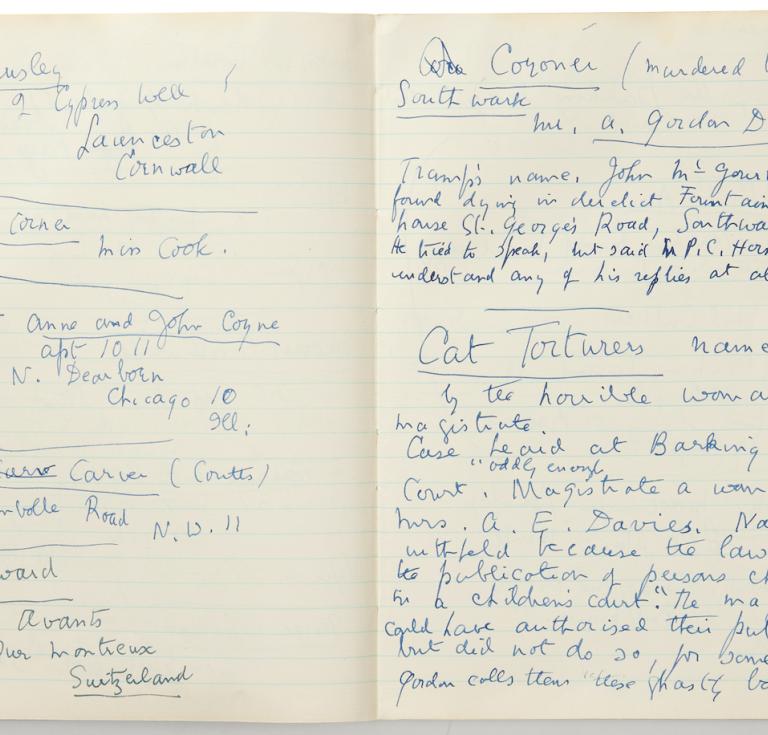 of Cypress Well
Launceston
Cornwall
Corner
Miss Cook.
Anne and John Coyne
apt 1011
N. Dearborn
Chicago 10
Ill:
Carver (Coutts)
Road N.W.11
ward
Avants
sur Montreux
Switzerland
Coroner (murdered
Southwark
Mr. A. Gordon D
Tramp's name, John Mc
found dying in derelict Fountain
house St. George's Road, Southwa
He tried to speak, but said P.C. Hors
understand any of his replies at al
Cat Torturers name
by the horrible woma
magistrate.
Case heard at Barking
"oddly enough
Court. Magistrate a wom
Mrs. A. E. Davies. Na
withheld because the law
the publication of persons ch
in a children's court." The ma
could have authorised their pub
but did not do so, for some
Gordon calls them "these ghastly bo